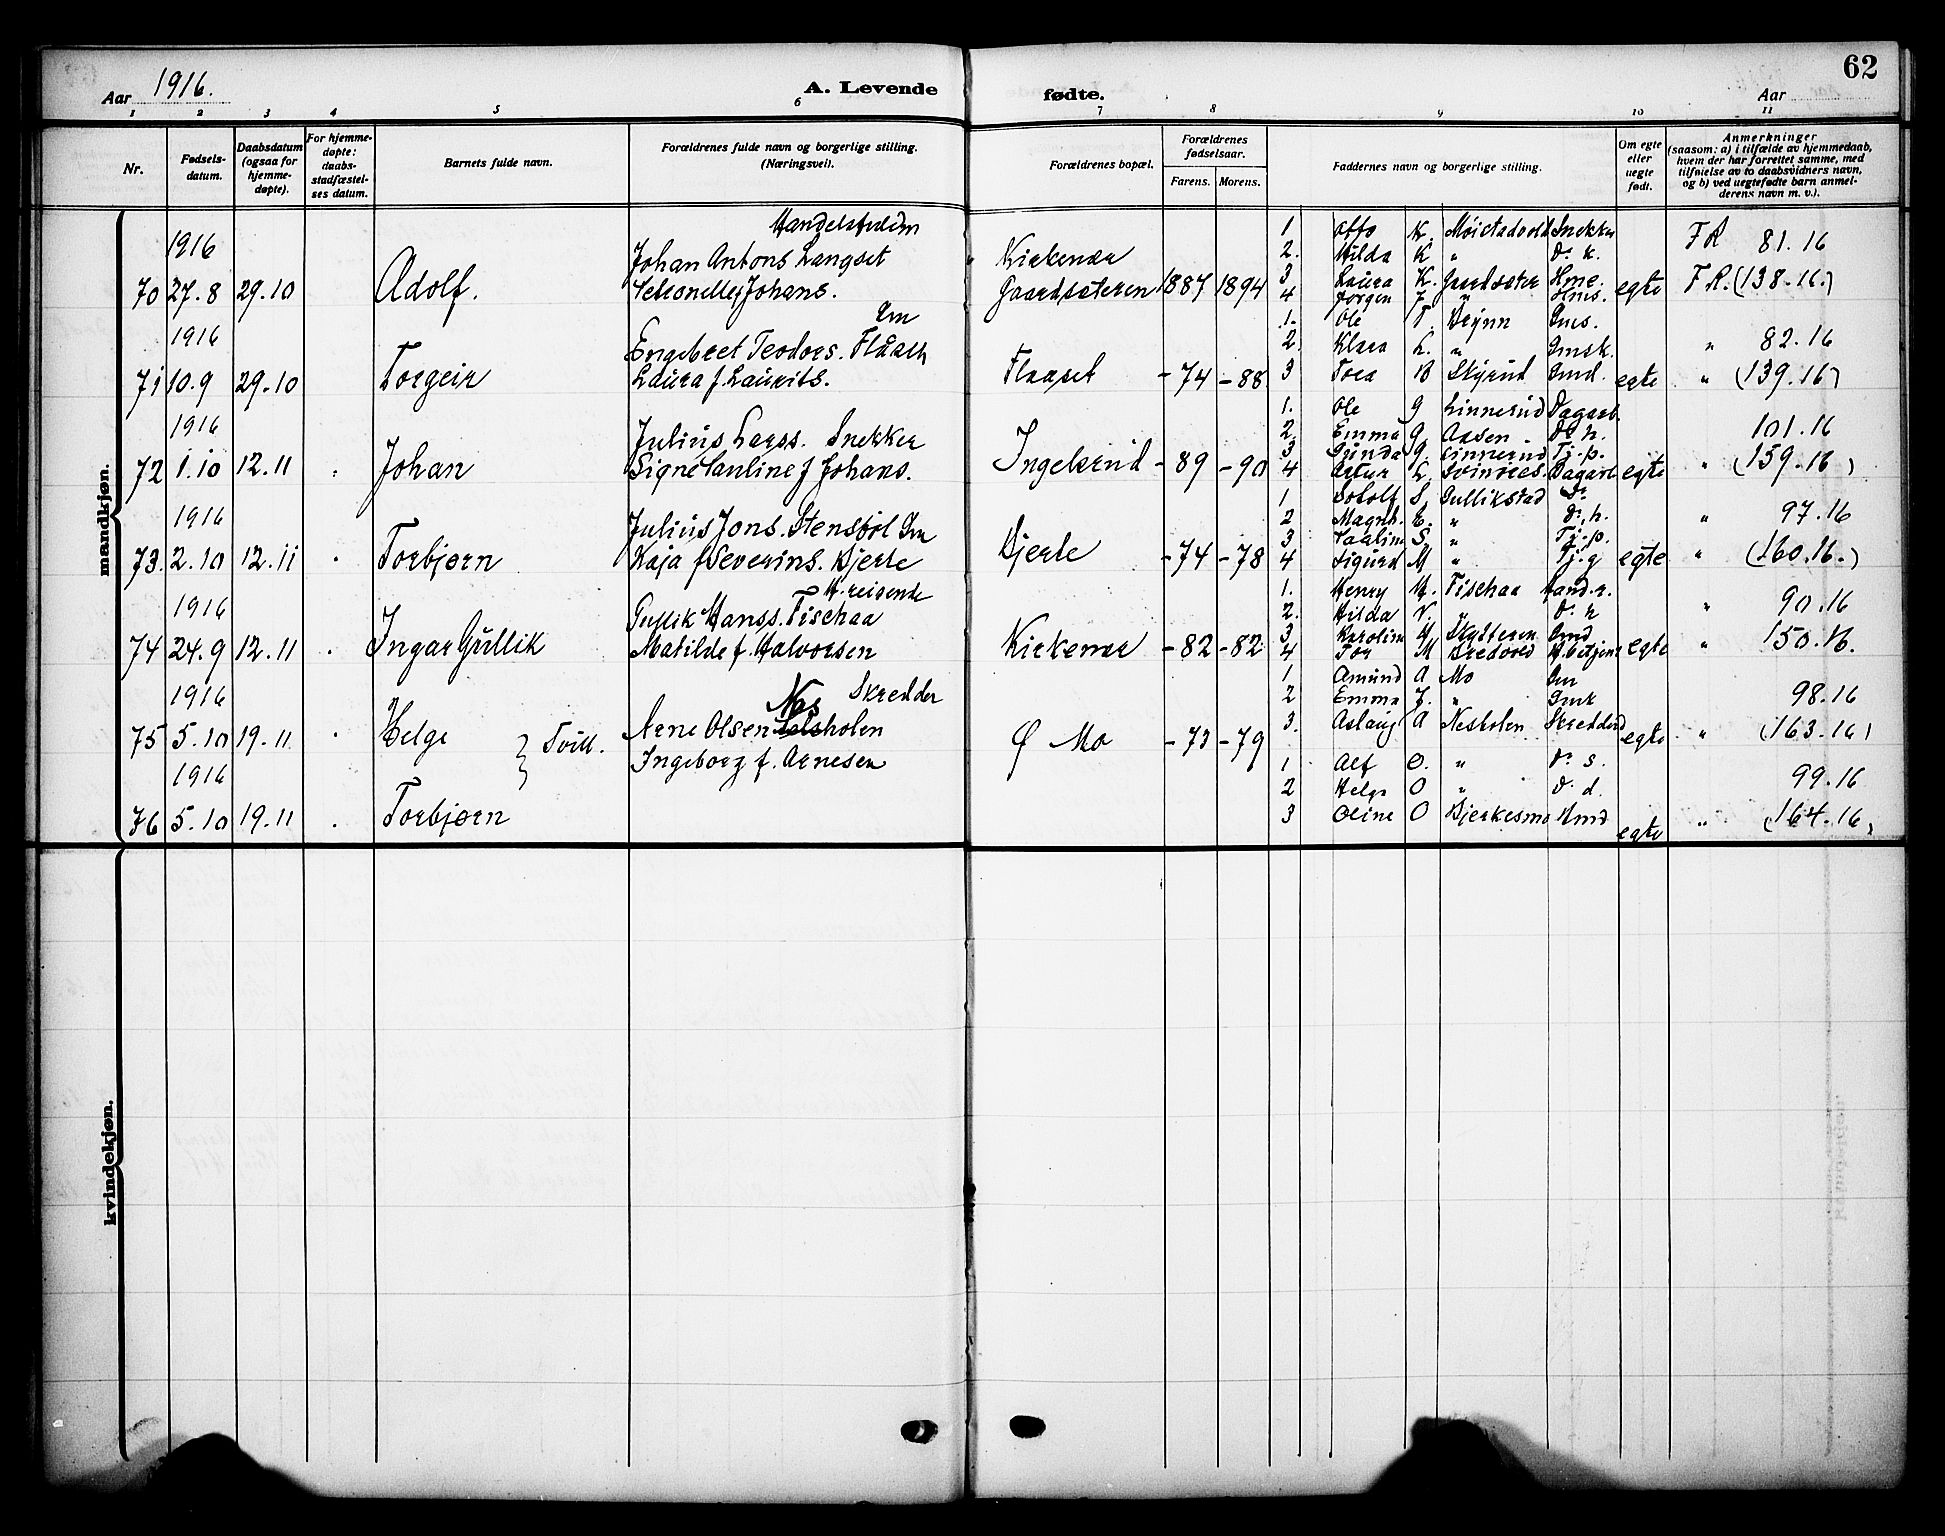 Aar 1916.
A. Levende
fødte.
62
Aar
1 2 3 4 5 6 7 8 9 10 11
Nr.
Fødsels-
datum.
Daabsdatum
(ogsaa for
hjemme-
døpte).
For hjemme-
døpte:
daabs-
stadfæstel-
ses datum.
Barnets fulde navn.
Forældrenes fulde navn og borgerlige stilling.
(Næringsvei).
Forældrenes bopæl.
Forældrenes
fødselsaar.
Farens. Morens.
Faddernes navn og borgerlige stilling.
Om egte
eller
uegte
født.
Anmerkninger
(saasom: a) i tilfælde av hjemmedaab,
hvem der har forrettet samme, med
tilføielse av to daabsvidners navn,
og b) ved uegtefødte barn anmel-
derens navn m. v.).
mandkjøn.
1916
70 27.8 29.10 Adolf.
Johan Antons Langset
Johans.
Kirkenær
Gaardsæteren 1887 1894
1 Otto K. Snekker
2. Hilda K " Do k.
3 Laura K. Hme.
4 Jørgen J " Hms.
egte
FR 81.16
FR. (138.16.)
1916
71 10.9 29.10 Torgeir
Gm
Engebret Teodors. Flåset
Laura f. Laurits.
Flaaset -74 -88
1. Ole T. Gms.
2. Klara L. " Gmsk.
3 Tora B Skyrud Gmd.
egte
" 82.16
" (139.16)
1916
72 1.10 12.11 Johan
Julius Larss. Snekker
Signe Pauline f Johans.
Ingelsrud -89 -90
1. Ole G Linnerud Dagarb.
2. Emma G. Aasen Do h.
3 Gunda G. Linnerud Tj.p.
4 Artur L. Dagarb
egte
101.16
" (159.16)
1916
73. 2.10 12.11 Torbjørn
Julius Jons. Stensbøl Gm
Kaja f Severins. Bjerke
Bjerke -74 -78
1 S. Gullikstad Do
2 Magnh. E. " Do h.
3 S. " Tj.p.
4 Sigurd M " Tj.g
egte
" 97.16
" (160.16.)
1916
74 24.9 12.11 Ingar Gullik
H.reisende
Gullik Hanss. Tischaa
Matilde f. Halvorsen
Kirkenær -82 -82
1. Henry H. Tischaa Hand.r.
2. Hilda N. " Do h
3. Karoline H Gmd
4 Tor M
egte
" 90.16
" 150.16.
1916
75 5.10 19.11 Helge
Tvill.
Skredder
Nes
Arne Olsen holen
Ingeborg f. Arnesen
Ø Mo -73 -79
1 Amund A Mo Gm
2 Emma J. " Gmk
3. Aslaug A Nesholen Skredderd
egte
98.16
" (163.16)
1916
76 5.10 19.11 Torbjørn
1 Alf O. " Do s.
2 Helga O " Do d.
3 Oline O Bjerkesmo Hmd
egte
99.16
" (164.16)
kvindekjøn.